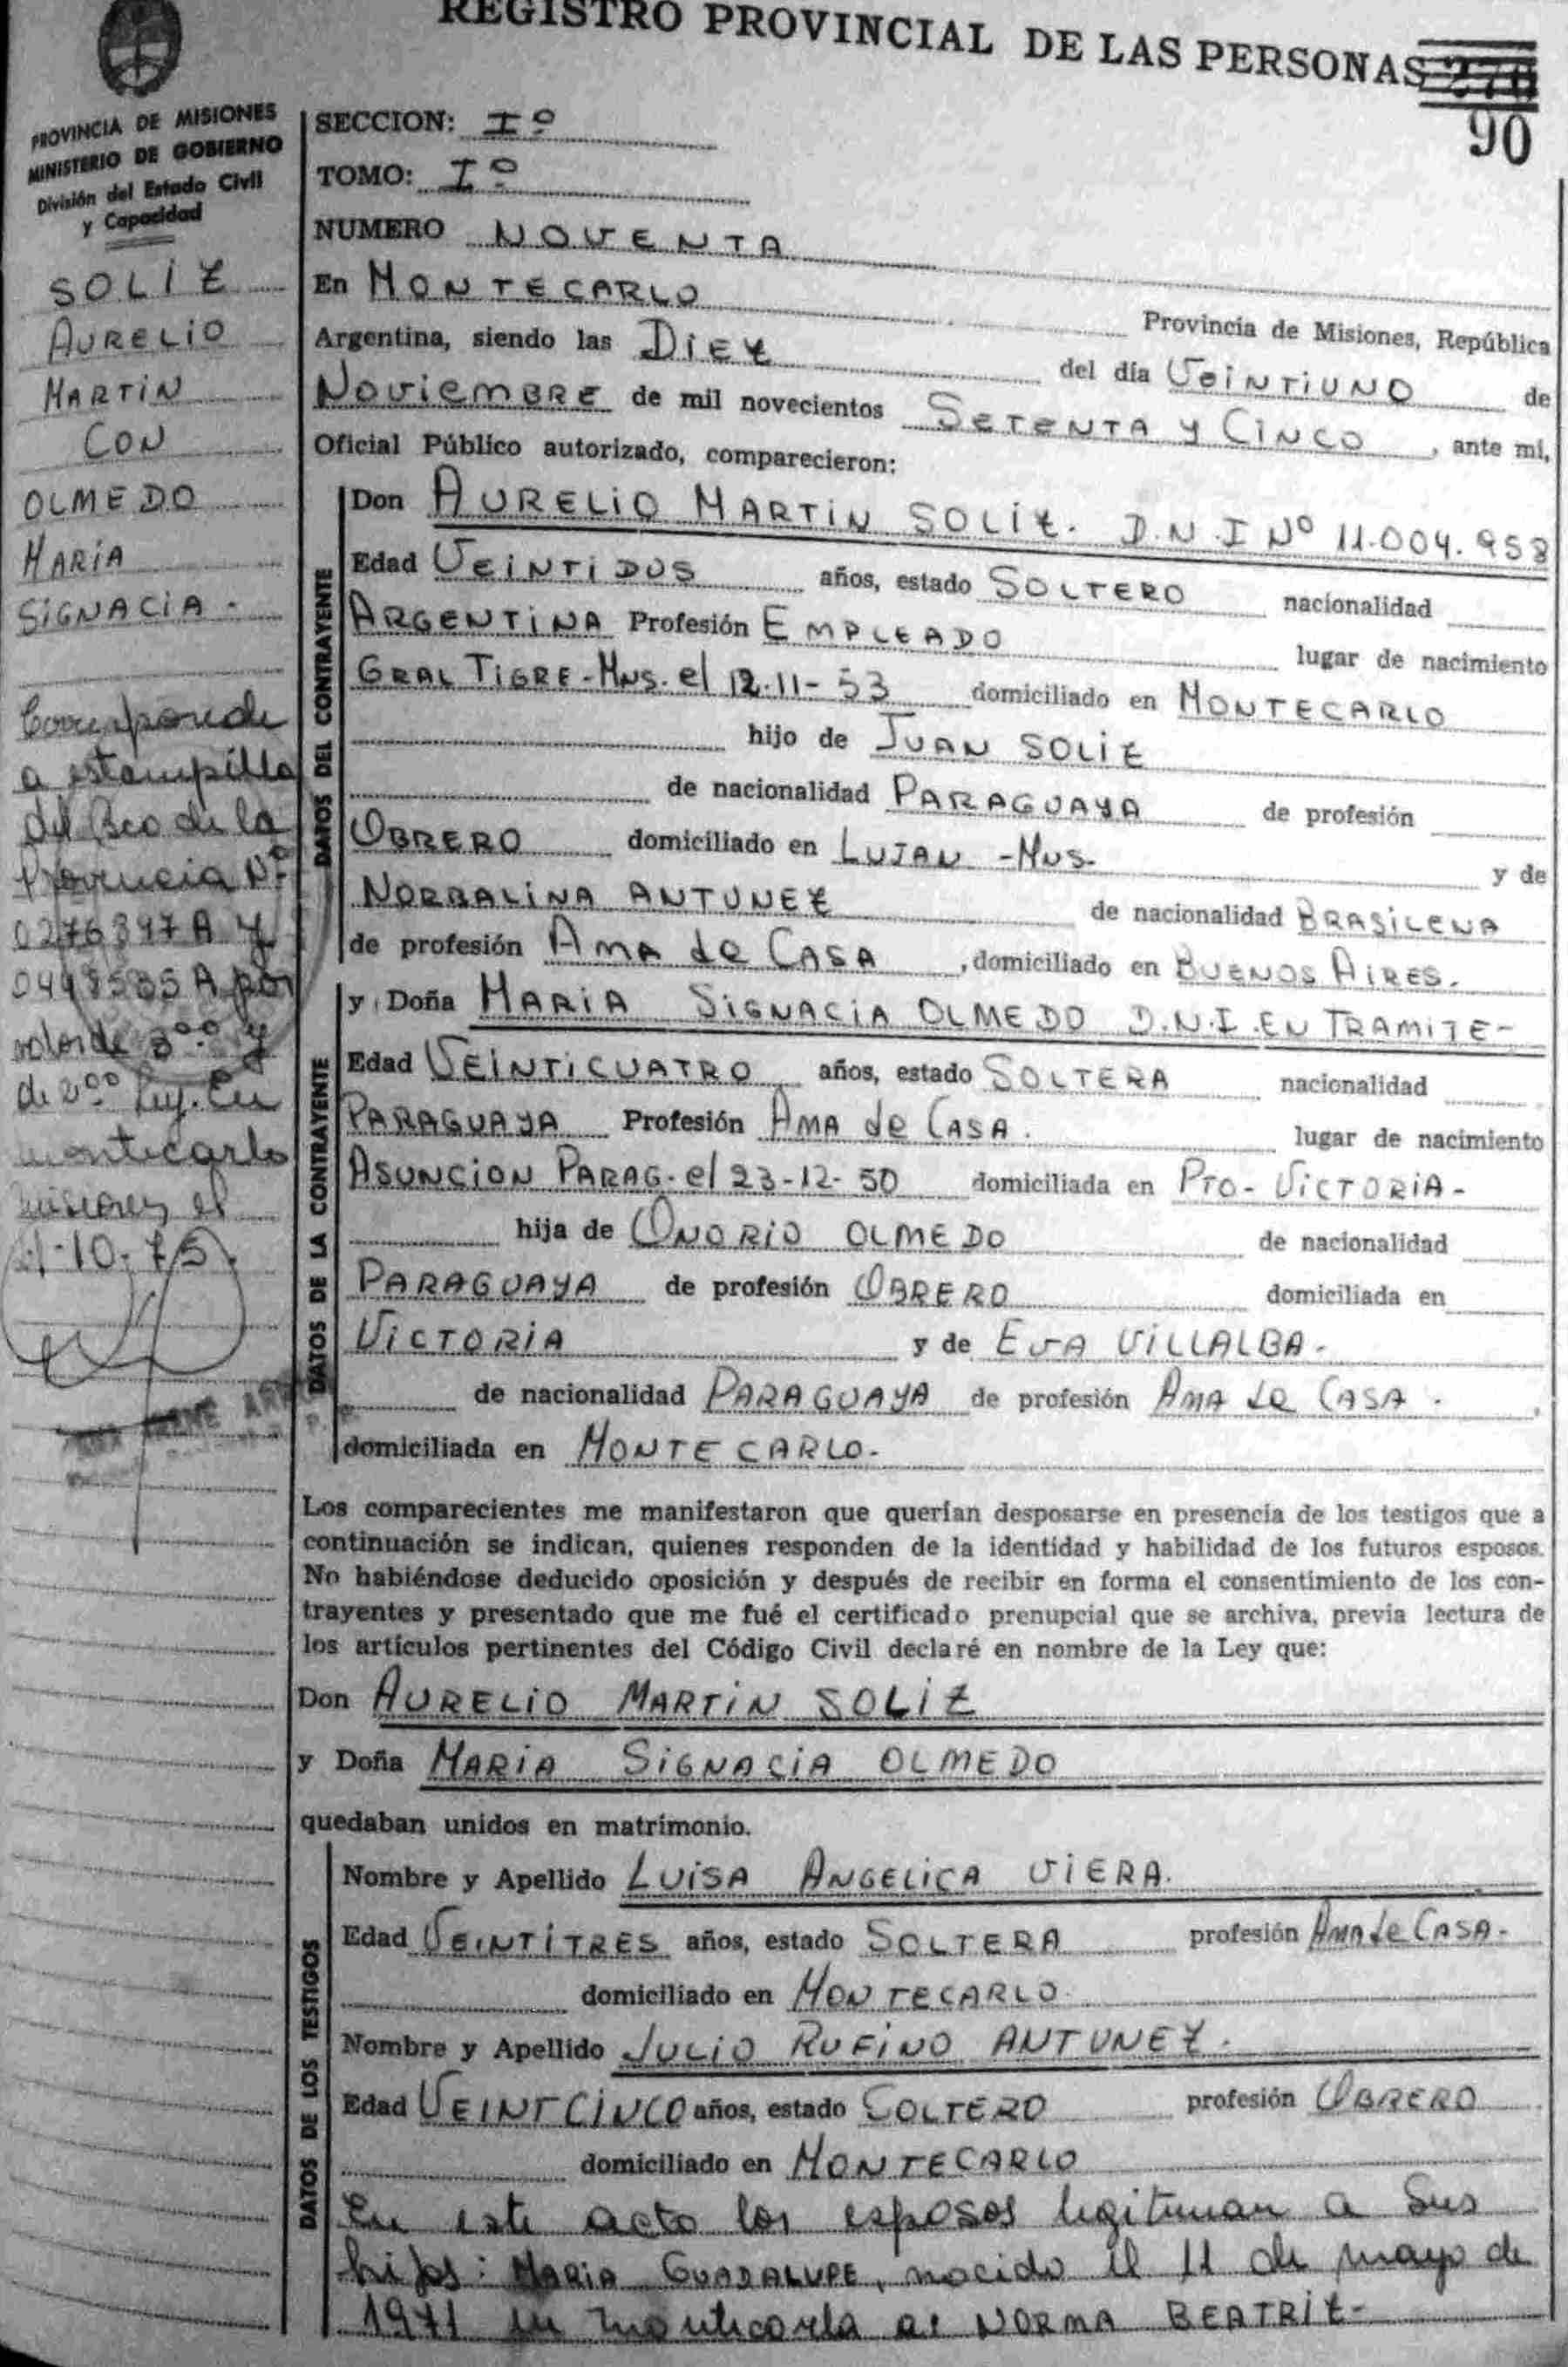 REGISTRO PROVINCIAL DE LAS PERSONAS
90
PROVINCIA DE MISIONES
MINISTERIO DE GOBIERNO
División del Estado Civil
y Capacidad
SOLIZ
AURELIO
MARTIN
CON
OLMEDO
MARIA
SIGNACIA -
Corresponde
a estampilla
del Bco de la
Provincia Nº
0276397A y
A por
valor de 3ºº y
de 2ºº Ley. En
Montecarlo
Misiones el
-10-75
SECCION: Iº
TOMO: Iº
NUMERO NOVENTA
En MONTECARLO Provincia de Misiones, República
Argentina, siendo las DIEZ del día VEINTIUNO de
NOVIEMBRE de mil novecientos SETENTA Y CINCO, ante mí,
Oficial Público autorizado, comparecieron:
DATOS DEL CONTRAYENTE
Don AURELIO MARTIN SOLIZ. D.N.I Nº 11.004.958
Edad VEINTIDOS años, estado SOLTERO nacionalidad
ARGENTINA Profesión EMPLEADO lugar de nacimiento
GRAL TIGRE-MNS. el 12-11-53 domiciliado en MONTECARLO
hijo de JUAN SOLIZ
de nacionalidad PARAGUAYA de profesión
OBRERO domiciliado en LUJAN -MNS- y de
NORBALINA ANTUNEZ de nacionalidad BRASILENA
de profesión AMA de CASA, domiciliado en BUENOS AIRES.
DATOS DE LA CONTRAYENTE
y Doña MARIA SIGNACIA OLMEDO D.N.I. EN TRAMITE-
Edad VEINTICUATRO años, estado SOLTERA nacionalidad
PARAGUAYA Profesión AMA de CASA. lugar de nacimiento
ASUNCION PARAG. el 23-12-50 domiciliada en PTO- VICTORIA-
hija de ONORIO OLMEDO de nacionalidad
PARAGUAYA de profesión OBRERO domiciliada en
VICTORIA y de EVA VILLALBA.
de nacionalidad PARAGUAYA de profesión AMA de CASA.
domiciliada en MONTECARLO-
Los comparecientes me manifestaron que querían desposarse en presencia de los testigos que a
continuación se indican, quienes responden de la identidad y habilidad de los futuros esposos.
No habiéndose deducido oposición y después de recibir en forma el consentimiento de los con-
trayentes y presentado que me fué el certificado prenupcial que se archiva, previa lectura de
los artículos pertinentes del Código Civil declaré en nombre de la Ley que:
Don AURELIO MARTIN SOLIZ
y Doña MARIA SIGNACIA OLMEDO
quedaban unidos en matrimonio.
DATOS DE LOS TESTIGOS
Nombre y Apellido LUISA ANGELICA VIERA.
Edad VEINTITRES años, estado SOLTERA profesión AMA de CASA-
domiciliado en MONTECARLO
Nombre y Apellido JULIO RUFINO ANTUNEZ.
Edad VEINTCINCO años, estado SOLTERO profesión OBRERO
domiciliado en MONTECARLO
En este acto los esposos legitiman a sus
hijos: MARIA GUADALUPE, nacido el 11 de mayo de
1971 en Montecarlo NORMA BEATRIZ-